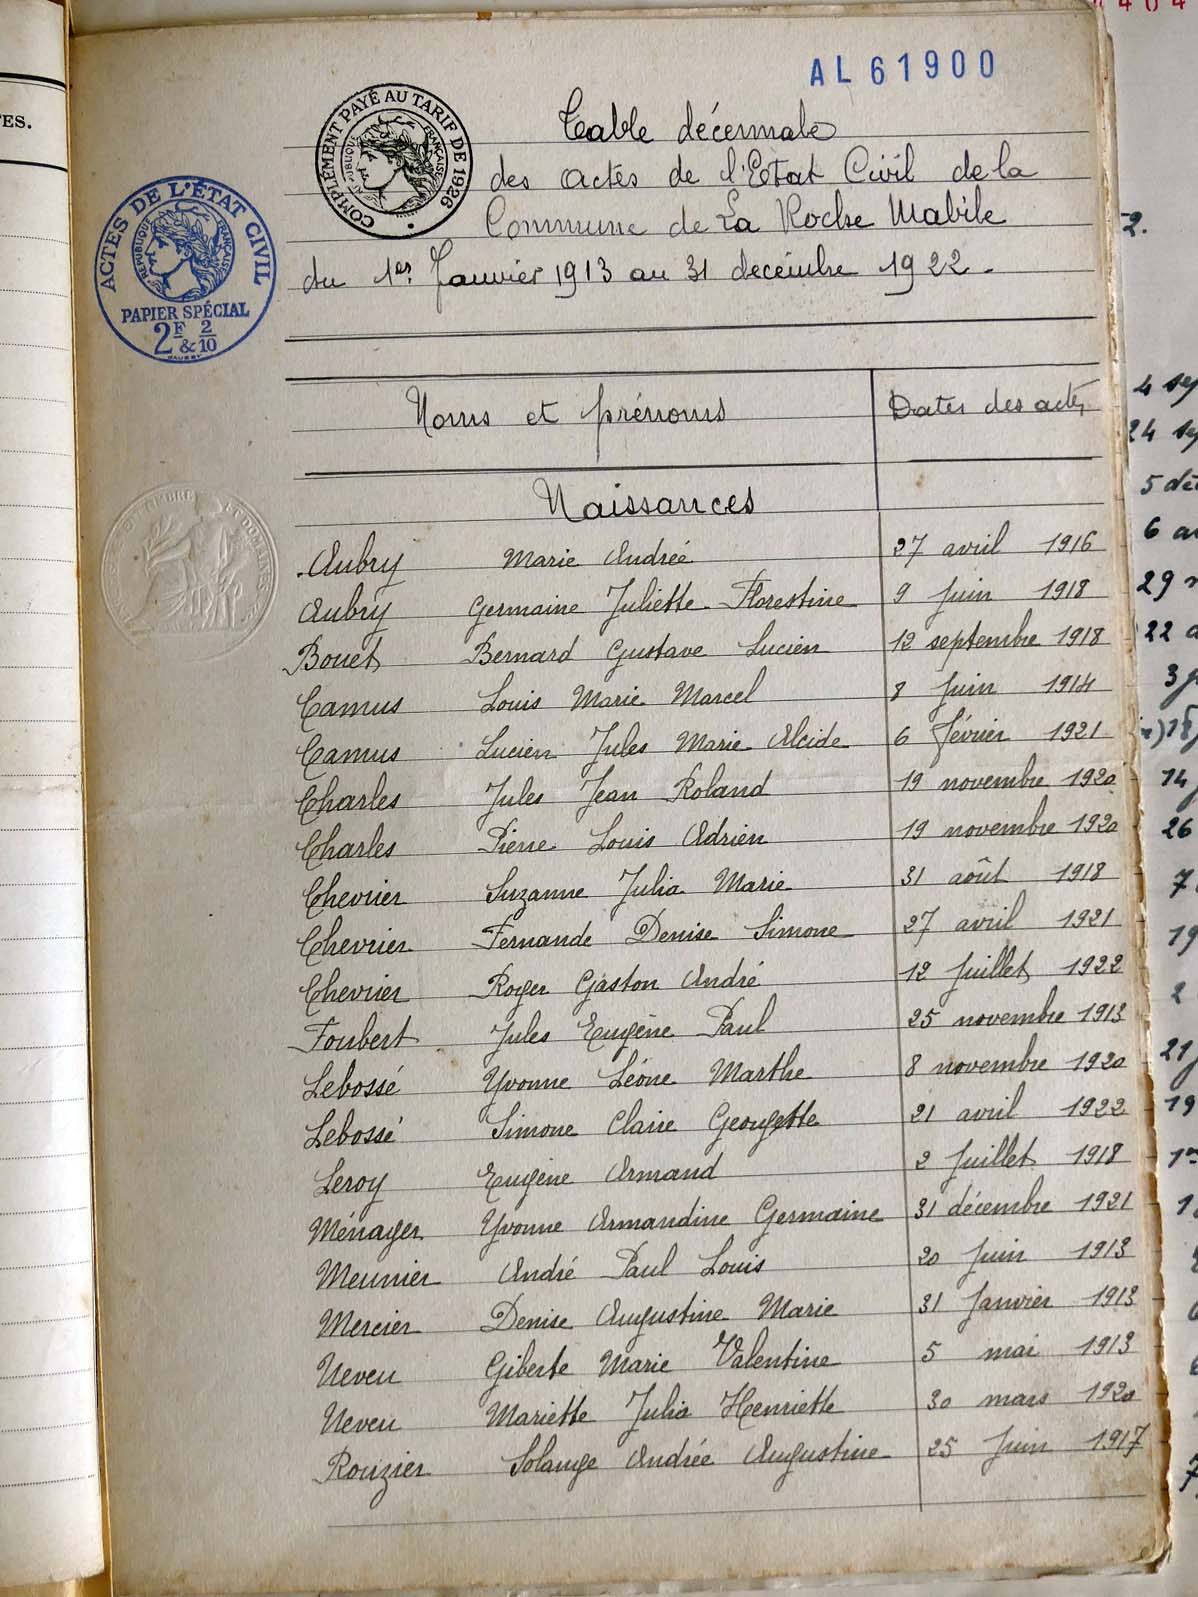 404
TES.
AL 61900
COMPLÉMENT PAYÉ AU TARIF DE 1926
RÉPUBLIQUE FRANÇAISE
ACTES DE L'ÉTAT CIVIL
RÉPUBLIQUE FRANÇAISE
PAPIER SPÉCIAL
2F & 2/10
Table décennale
des actes de l'Etat Civil de la
Commune de La Roche Mabile
du 1er Janvier 1913 au 31 decembre 1922.
Noms et prénoms Dates des actes
Naissances
Aubry Marie Andrée 27 avril 1916
Aubry Germaine Juliette Florestine 9 Juin 1918
Bouet Bernard Gustave Lucien 12 septembre 1918
Camus Louis Marie Marcel 8 Juin 1914
Camus Lucien Jules Marie Alcide 6 février 1921
Charles Jules Jean Roland 19 novembre 1920
Charles Pierre Louis Adrien 19 novembre 1920
Chevrier Suzanne Julia Marie 31 août 1918
Chevrier Fernande Denise Simone 27 avril 1921
Chevrier Roger Gaston André 12 Juillet 1922
Foubert Jules Eugène Paul 25 novembre 1913
Lebossé Yvonne Léone Marthe 8 novembre 1920
Lebossé Simone Claire Georgette 21 avril 1922
Leroy Eugène Armand 2 Juillet 1918
Ménager Yvonne Armandine Germaine 31 décembre 1921
Meunier André Paul Louis 20 Juin 1913
Mercier Denise Augustine Marie 31 Janvier 1913
Neveu Giberte Marie Valentine 5 mai 1913
Neveu Mariette Julia Henriette 30 mars 1920
Rouzier Solange Andrée Augustine 25 Juin 1917
2.
4 sep
24 sep
5 déc
6 av
29
22
3
18
14
26
7
19
2
21
19
1er